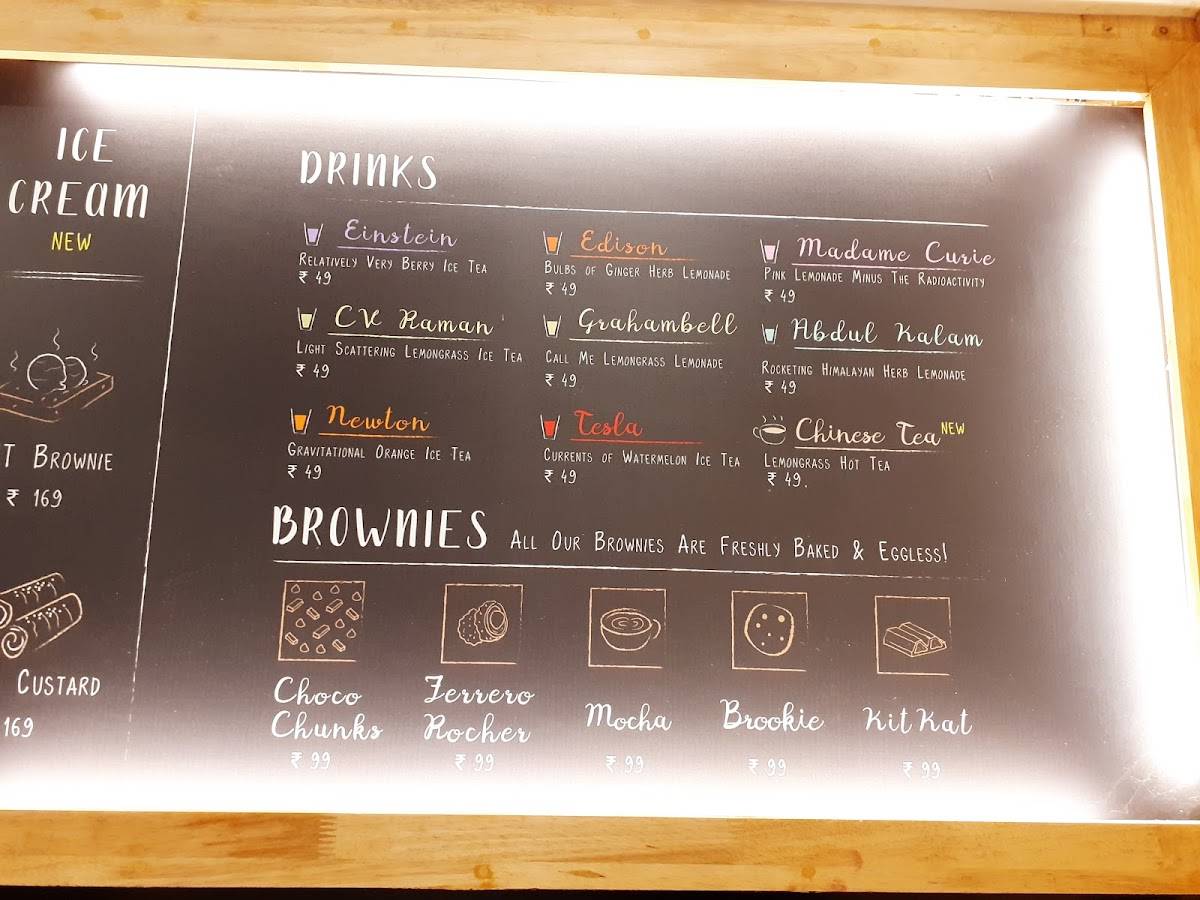 ICE
CREAM
NEW
T BROWNIE
₹ 169
CUSTARD
169
DRINKS
Einstein
RELATIVELY VERY BERRY ICE TEA
₹ 49
Edison
BULBS OF GINGER HERB LEMONADE
₹ 49
Madame Curie
PINK LEMONADE MINUS THE RADIOACTIVITY
₹ 49
CV Raman
LIGHT SCATTERING LEMONGRASS ICE TEA
₹ 49
Grahambell
CALL ME LEMONGRASS LEMONADE
₹ 49
Abdul Kalam
ROCKETING HIMALAYAN HERB LEMONADE
₹ 49
Newton
GRAVITATIONAL ORANGE ICE TEA
₹ 49
Tesla
CURRENTS OF WATERMELON ICE TEA
₹ 49
Chinese Tea NEW
LEMONGRASS HOT TEA
₹ 49.
BROWNIES ALL OUR BROWNIES ARE FRESHLY BAKED & EGGLESS!
Choco
Chunks
₹ 99
Ferrero
Rocher
₹ 99
Mocha
₹ 99
Brookie
₹ 99
KitKat
₹ 99